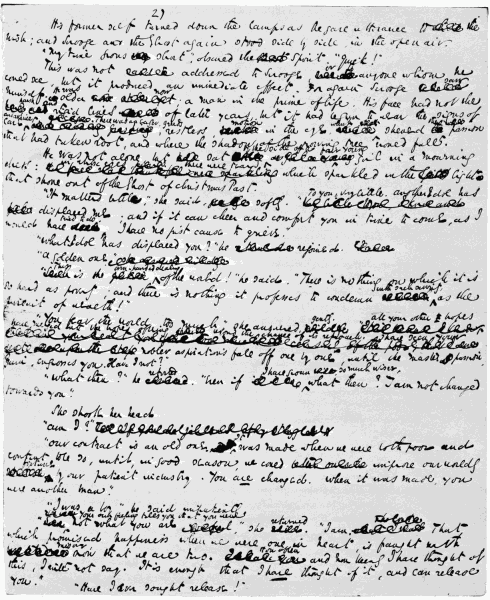 27
His former self turned down the lamps as he gave utterance to the
wish; and Scrooge and the Ghost again stood side by side in the open air.
"My time grows short," observed the Spirit. "Quick!"
This was not addressed to Scrooge, or to anyone whom he
could see, but it produced an immediate effect. For again Scrooge saw
himself. He was older now; a man in the prime of life. His face had not the
lines of later years; but it had begun to wear the signs of
care and avarice. There was an eager, greedy, restless motion in the eye, which shewed the passion
that had taken root, and where the shadow of the growing tree would fall.
He was not alone, but sat by the side of a fair young girl in a mourning
dress: in whose eyes there were tears, which sparkled in the light
that shone out of the Ghost of Christmas Past.
"It matters little," she said, softly. "To you, very little. Another idol has
displaced me; and if it can cheer and comfort you in time to come, as I
would have I have no just cause to grieve."
"What Idol has displaced you?" he rejoined.
"A golden one."
"This is the even-handed dealing of the world!" he said. "There is nothing on which it is
so hard as poverty; and there is nothing it professes to condemn with such severity as the
pursuit of wealth!"
"You fear the world too much," she answered gently. "All your other hopes
have merged into the hope of being beyond the chance of its reproach. I have seen your
nobler aspirations fall off one by one, until the master passion,
Gain, engrosses you. Have I not?"
"What then?" he retorted. "Even if I have grown so much wiser, what then? I am not changed
towards you."
She shook her head.
"Am I?"
"Our contract is an old one. It was made when we were both poor and
content to be so, until, in good season, we could improve our worldly
fortune by our patient industry. You are changed. When it was made, you
were another man."
"I was a boy," he said impatiently.
"Your own feeling tells you that you were not what you are," she returned. "I am. That
which promised happiness when we were one in heart, is fraught with
misery now that we are two. How often and how keenly I have thought of
this, I will not say. It is enough that I have thought of it, and can release
you."
"Have I ever sought release?"